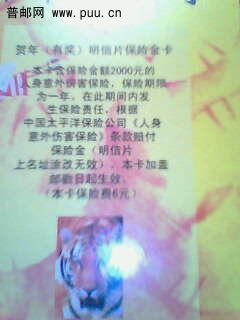 普邮网
www.puu.cn
贺年（有奖）明信片保险金卡
本卡含保险金额2000元的
人身意外伤害保险，保险期限
为一年，在此期间内发
生保险责任，根据
中国太平洋保险公司《人身
意外伤害保险》条款赔付
保险金（明信片
上名址涂改无效），本卡加盖
邮戳日起生效。
（本卡保险费6元）